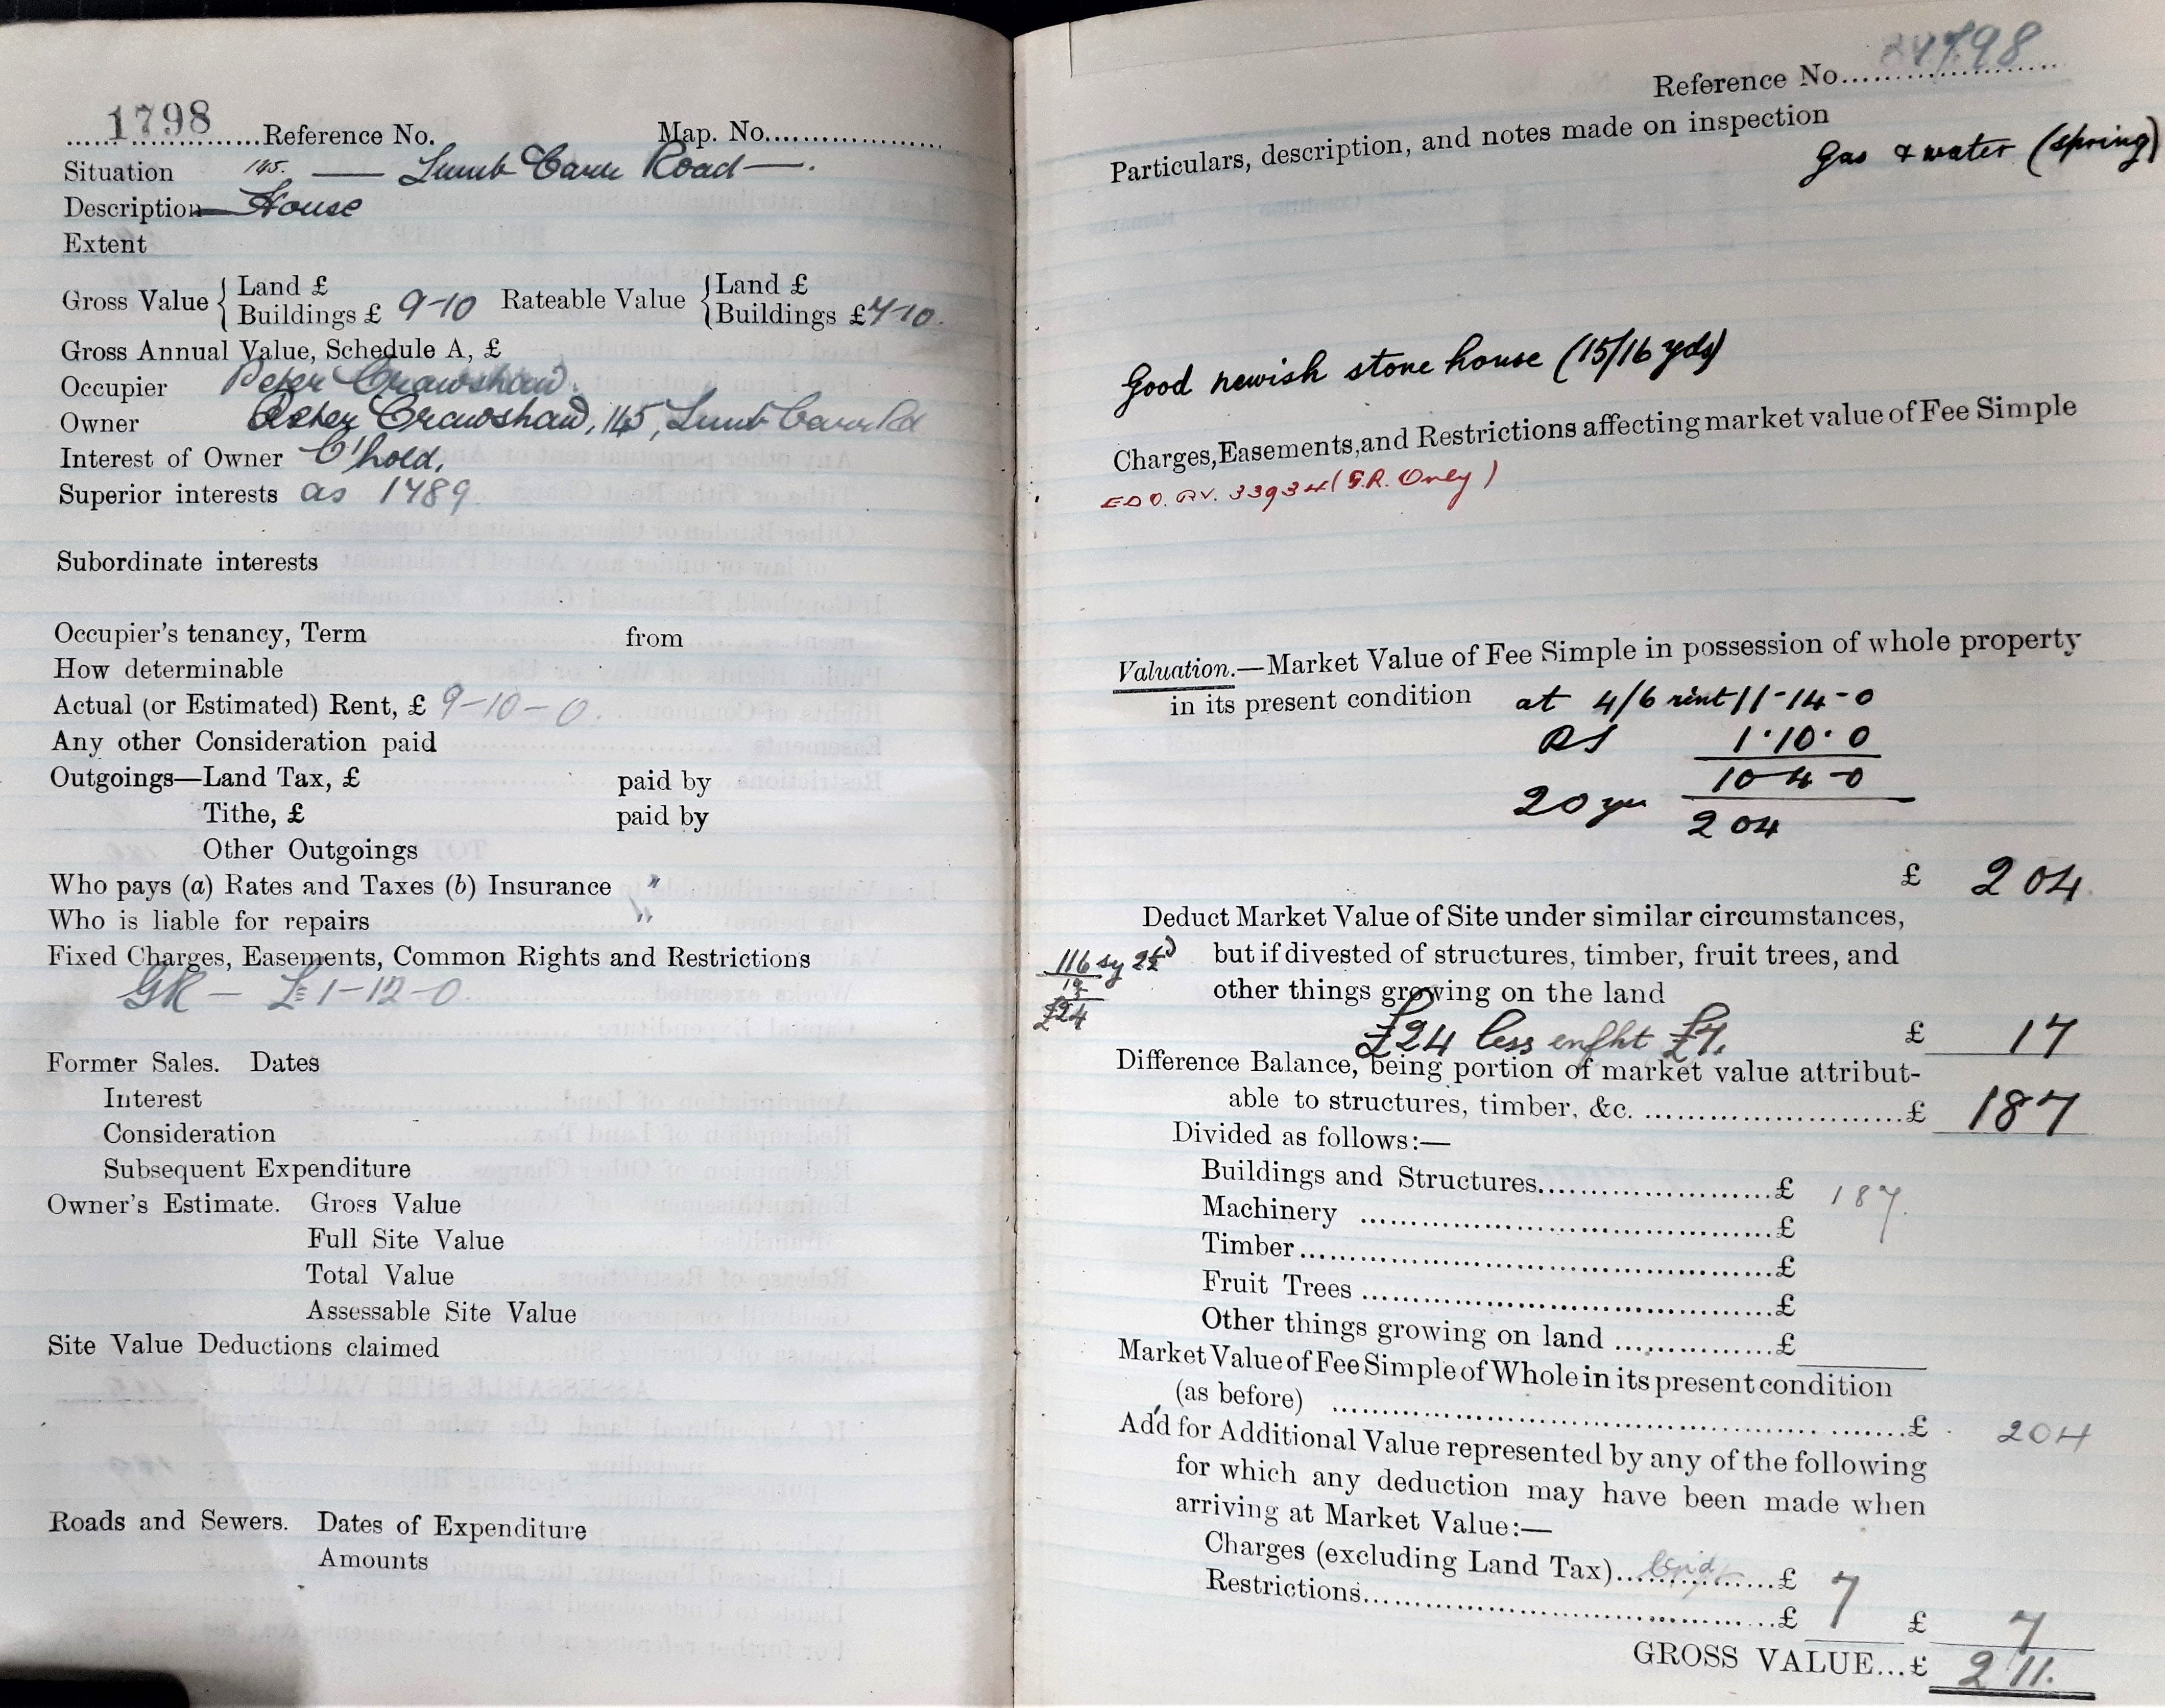 1798 Reference No. Map. No.
Situation 145. — Lumb Carr Road —.
Description — House
Extent
Gross Value { Land £ Rateable Value { Land £
Buildings £ 9-10 Buildings £ 7-10.
Gross Annual Value, Schedule A, £
Occupier Peter Crawshaw.
Owner Peter Crawshaw, 145, Lumb Carr Rd
Interest of Owner C'hold.
Superior interests as 1789
Subordinate interests
Occupier's tenancy, Term from
How determinable
Actual (or Estimated) Rent, £ 9-10-0.
Any other Consideration paid
Outgoings—Land Tax, £ paid by
Tithe, £ paid by
Other Outgoings
Who pays (a) Rates and Taxes (b) Insurance "
Who is liable for repairs "
Fixed Charges, Easements, Common Rights and Restrictions
GR — £1-12-0.
Former Sales. Dates
Interest
Consideration
Subsequent Expenditure
Owner's Estimate. Gross Value
Full Site Value
Total Value
Assessable Site Value
Site Value Deductions claimed
Roads and Sewers. Dates of Expenditure
Amounts
Reference No. 1798
Particulars, description, and notes made on inspection
Gas & water (spring)
Good newish stone house (15/16 yds)
Charges, Easements, and Restrictions affecting market value of Fee Simple
33934 (G.R. Only)
Valuation.—Market Value of Fee Simple in possession of whole property
in its present condition at 4/6 rent 11-14-0
1.10.0
10-4-0
20 yrs
204
£ 204.
Deduct Market Value of Site under similar circumstances,
116 sy 2½d but if divested of structures, timber, fruit trees, and
other things growing on the land
£24
£24 less enfht £7. £ 17
Difference Balance, being portion of market value attribut-
able to structures, timber, &c. £ 187
Divided as follows:—
Buildings and Structures £ 187.
Machinery £
Timber £
Fruit Trees £
Other things growing on land £
Market Value of Fee Simple of Whole in its present condition
(as before) £ 204
Add for Additional Value represented by any of the following
for which any deduction may have been made when
arriving at Market Value:—
Charges (excluding Land Tax) £ 7
Restrictions £ £ 7
GROSS VALUE...£ 211.